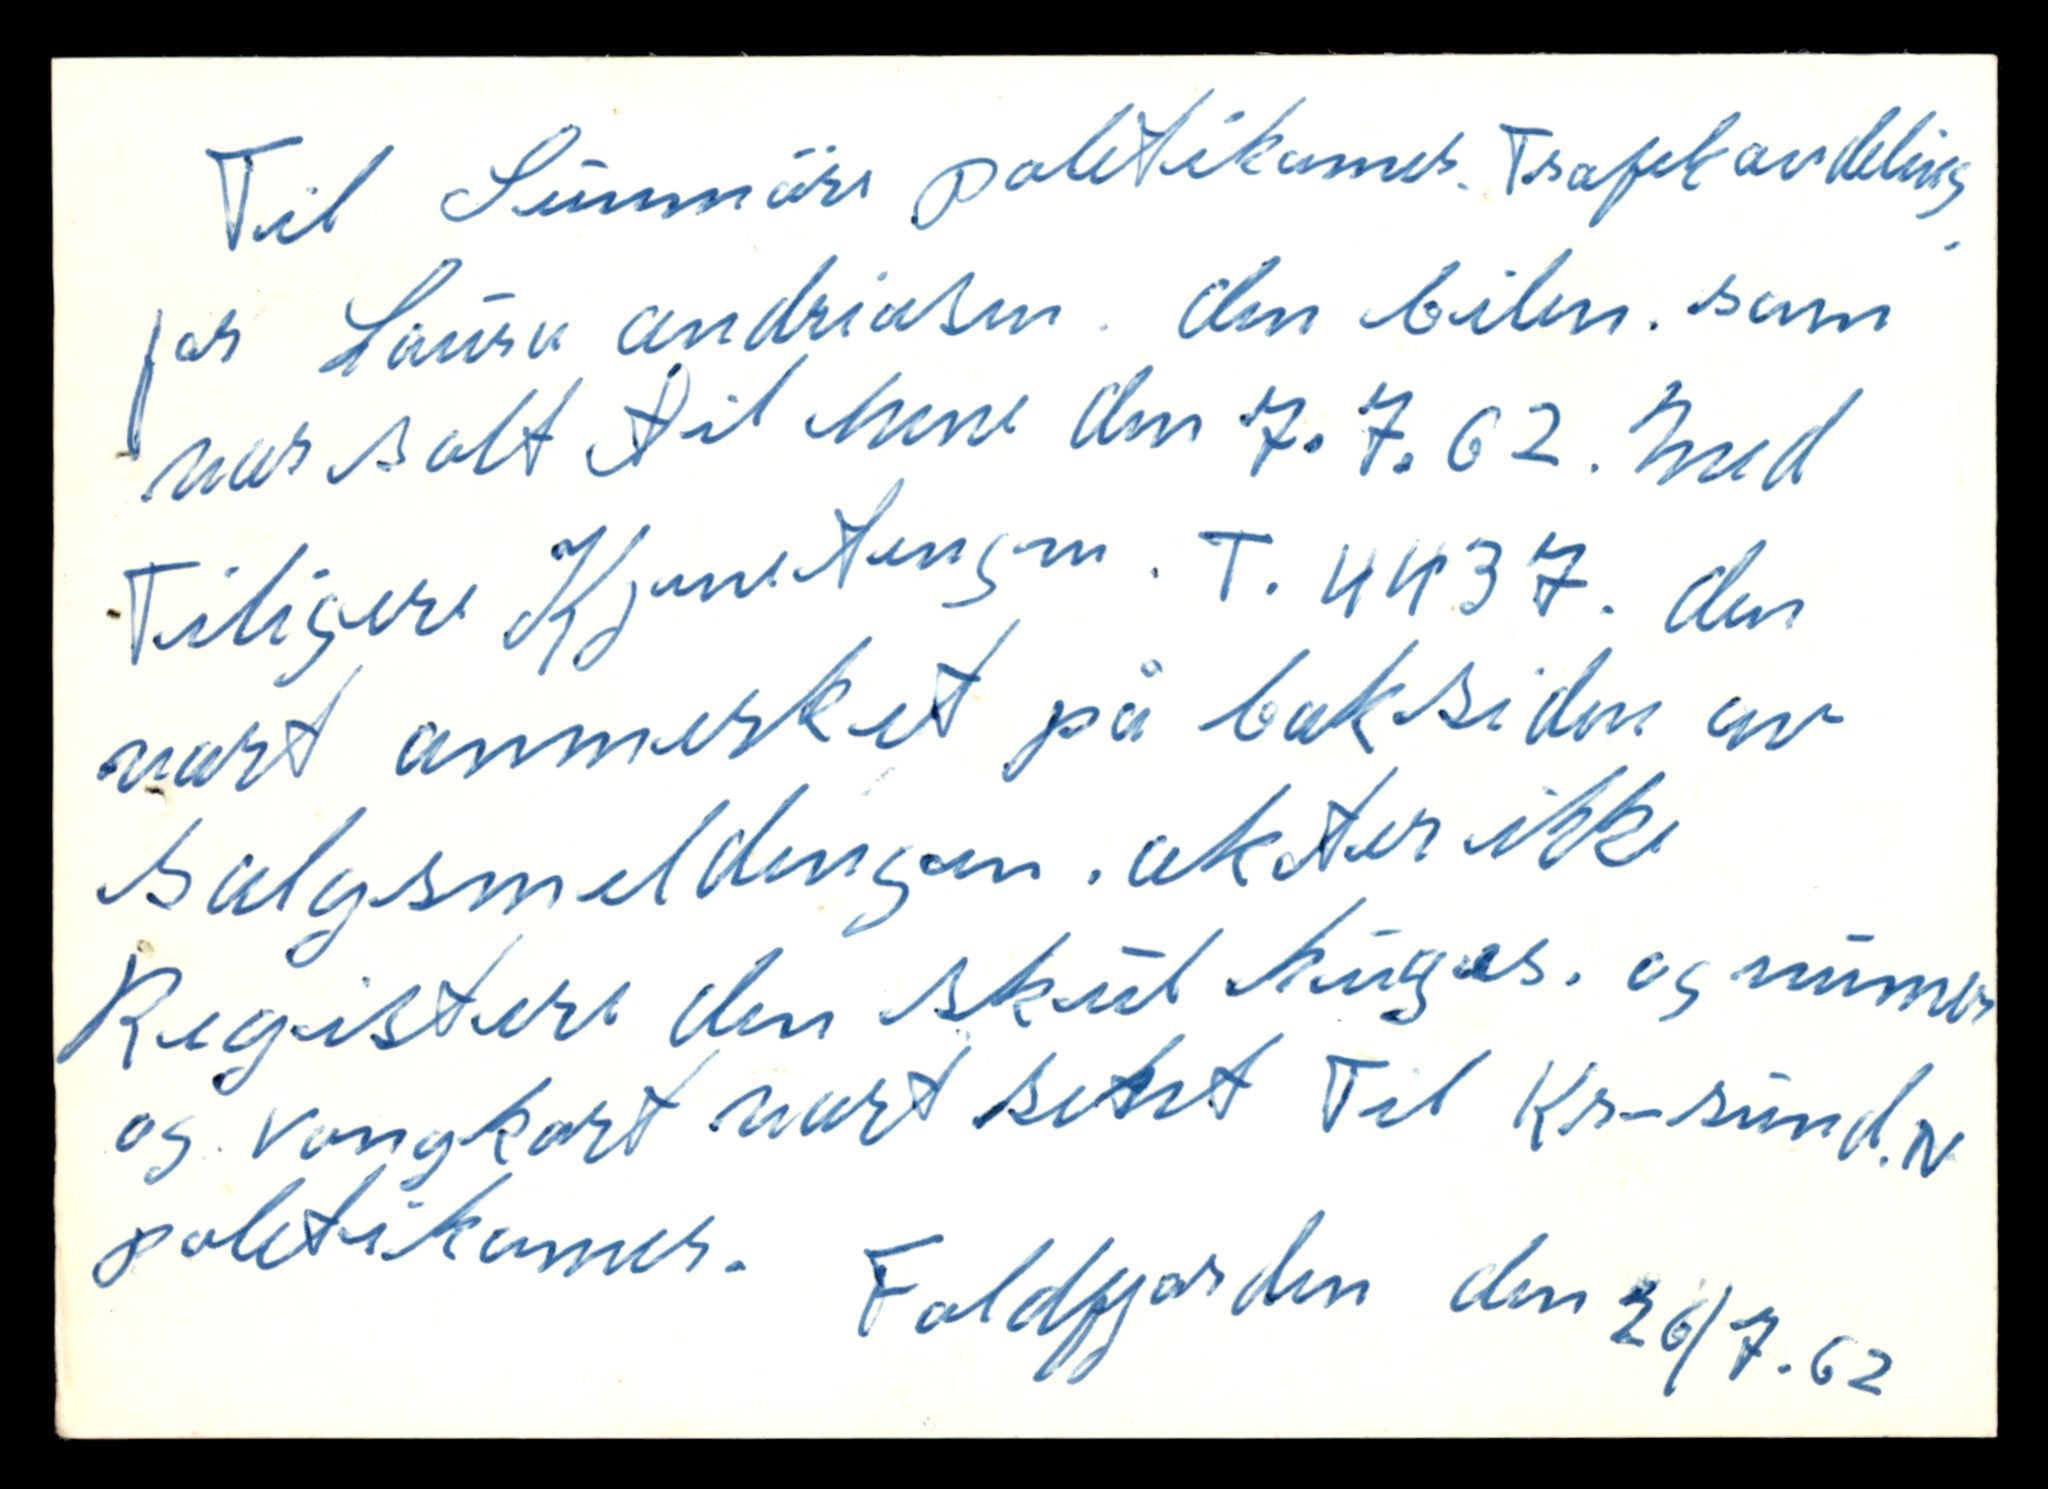 Til Sunnmöre poletikamer. Trafekavdeling
for Laura andriasen. den bilen. som
var solt til hene den 7.7.62. med
Tiligere Kjenetengn. T. 4437. den
vart anmerket på baksiden av
salgsmeldingen. akter ikke
Registere den skul hugas. og numer
og vongkort vart sent Til Kr-sund.N
poletikamer.
Foldfjorden den 26/7.62